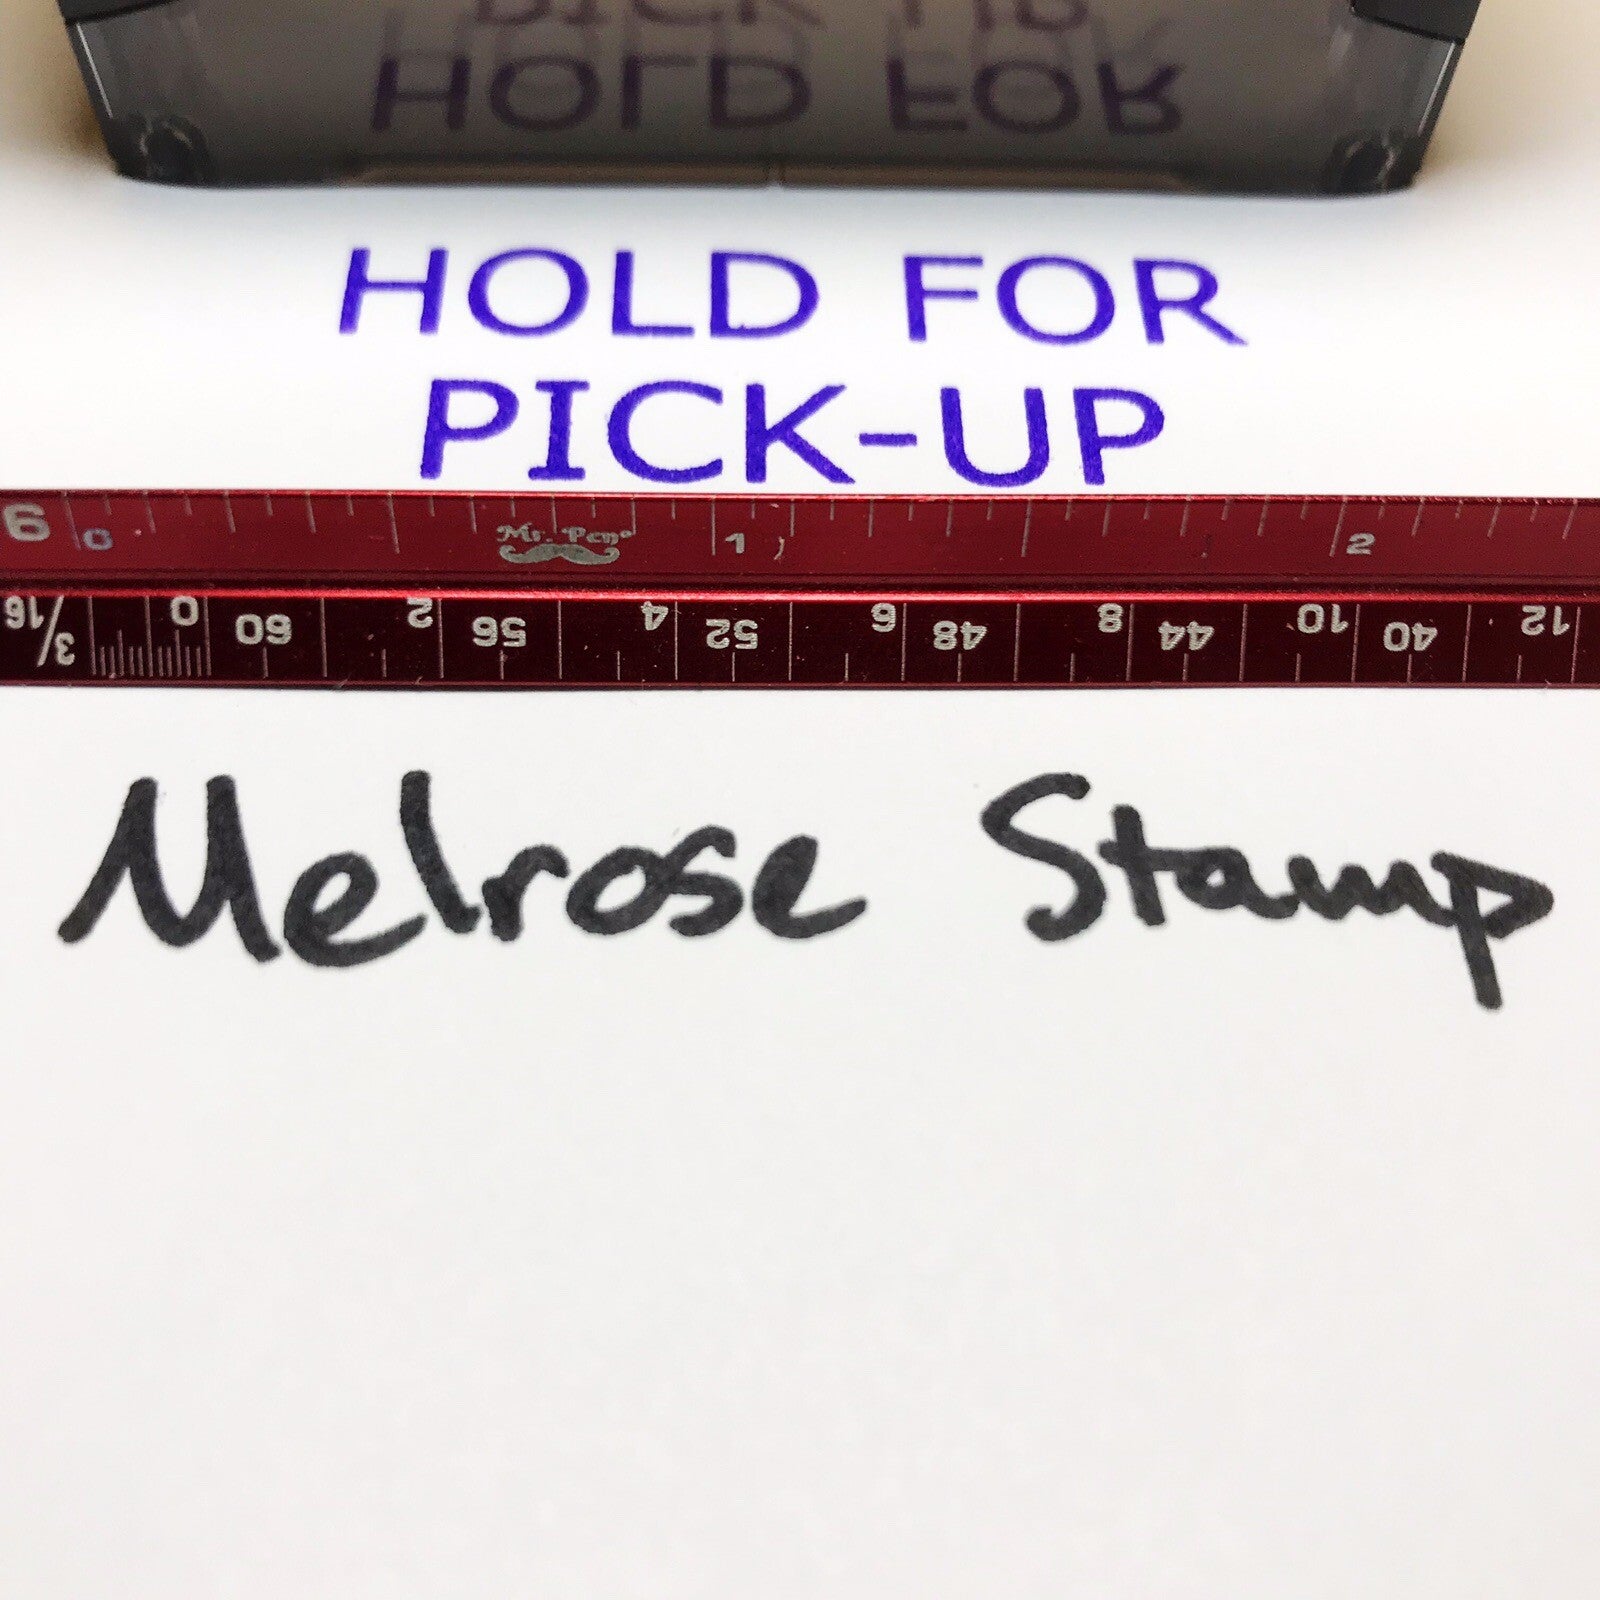 PICK-UP
HOLD FOR
HOLD FOR
PICK-UP
6 0 Mr. Pen 1 2
3/16 0 60 2 56 4 52 6 48 8 44 10 40 12
Melrose Stamp